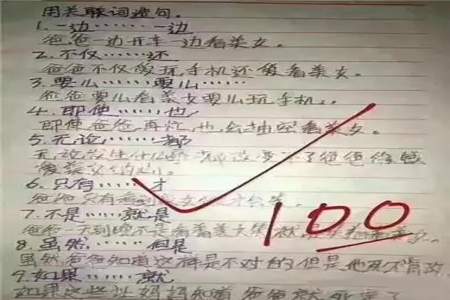 用关联词造句。
1. 一边……一边
爸爸一边开车一边看美女。
2. 不仅……还
爸爸不仅爱玩手机还爱看美女。
3. 要么……要么……
爸爸要么看美女要么玩手机。
4. 即使……也
即使爸爸再忙,也会抽空看美女。
5. 无论……都
无论发生什么
6. 只有……才
爸爸只有看到
7. 不是……就是
爸爸一天到晚不是看着美女
8. 虽然……但是
虽然爸爸知道这样是不对的但是他死不悔改
9. 如果……就
如果这些让妈妈知道爸爸就死定了
100